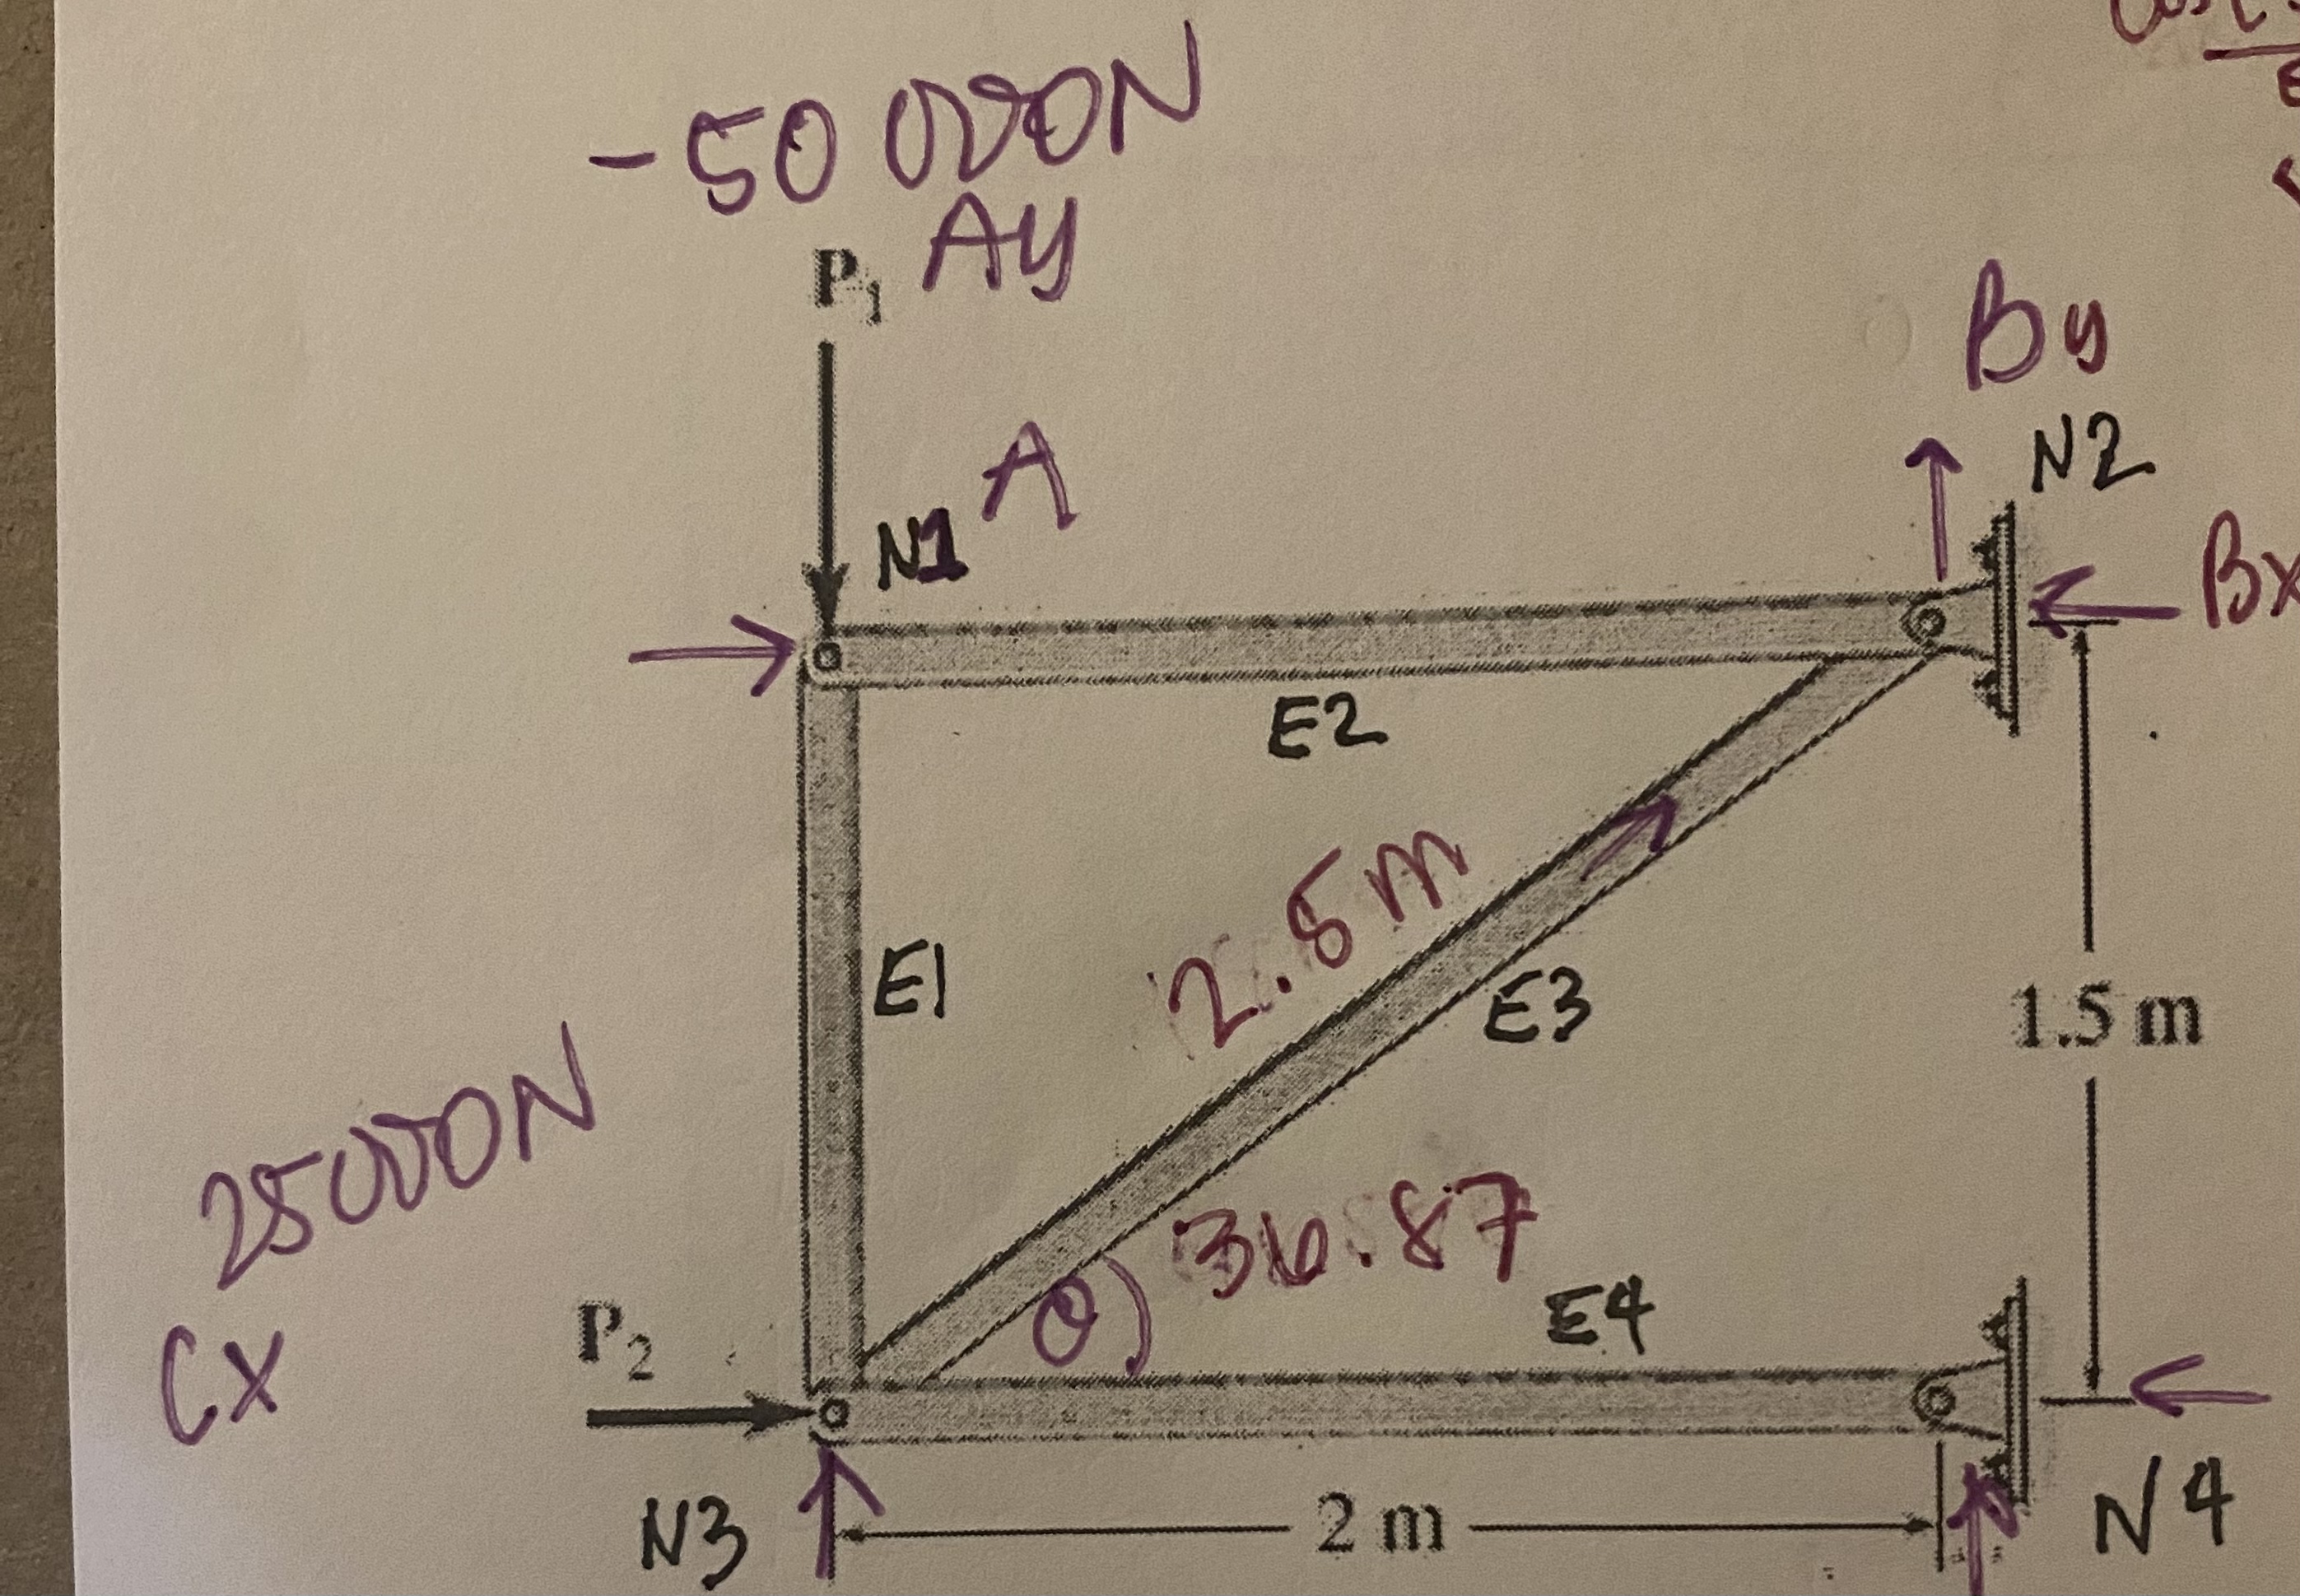 -50 000N
Ay
P1
By
N2
A
N1
Bx
E2
2.5m
E3
1.5 m
E1
25000N
36.87
θ
E4
P2
Cx
N3
2 m
N4